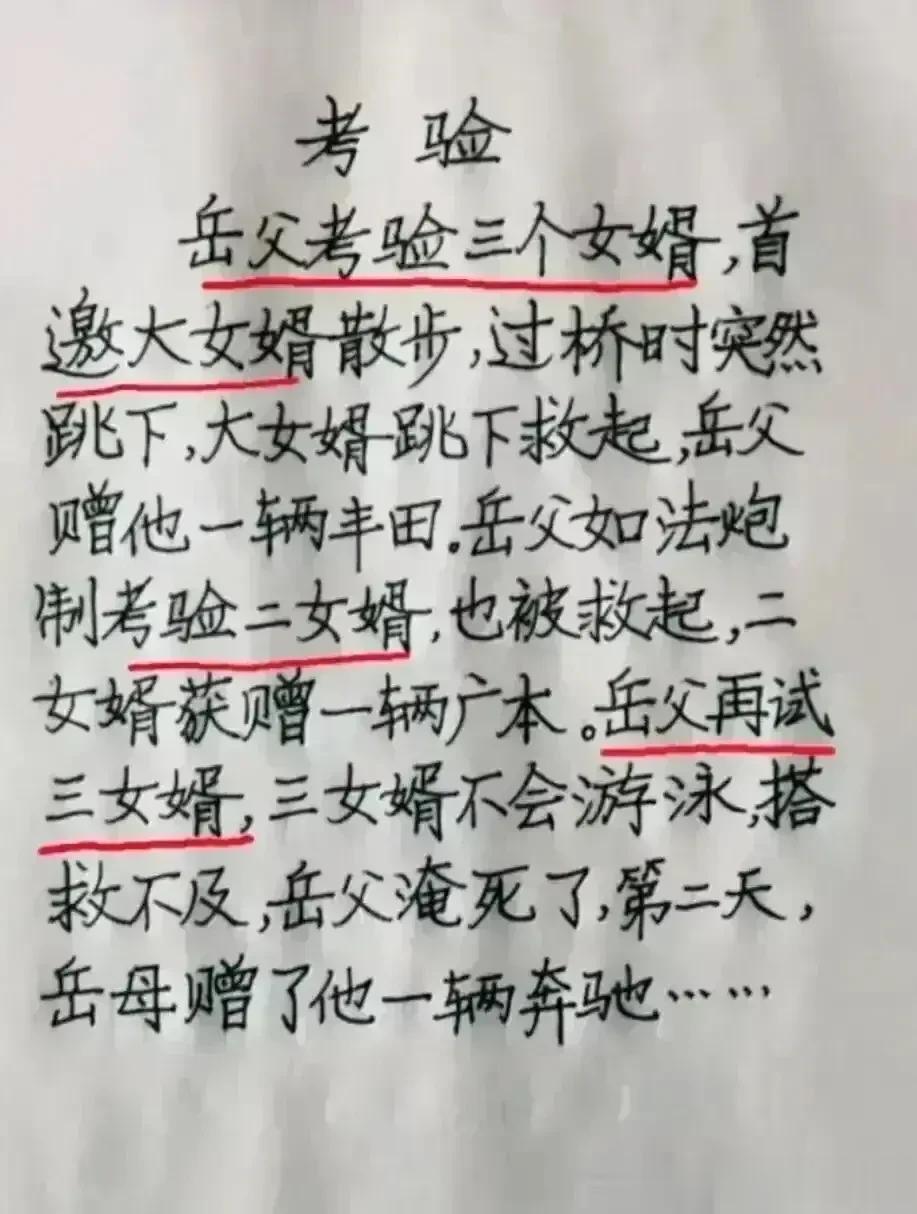 考验
岳父考验三个女婿,首
邀大女婿散步,过桥时突然
跳下,大女婿跳下救起,岳父
赠他一辆丰田.岳父如法炮
制考验二女婿,也被救起,二
女婿获赠一辆广本。岳父再试
三女婿,三女婿不会游泳,搭
救不及,岳父淹死了,第二天,
岳母赠了他一辆奔驰……